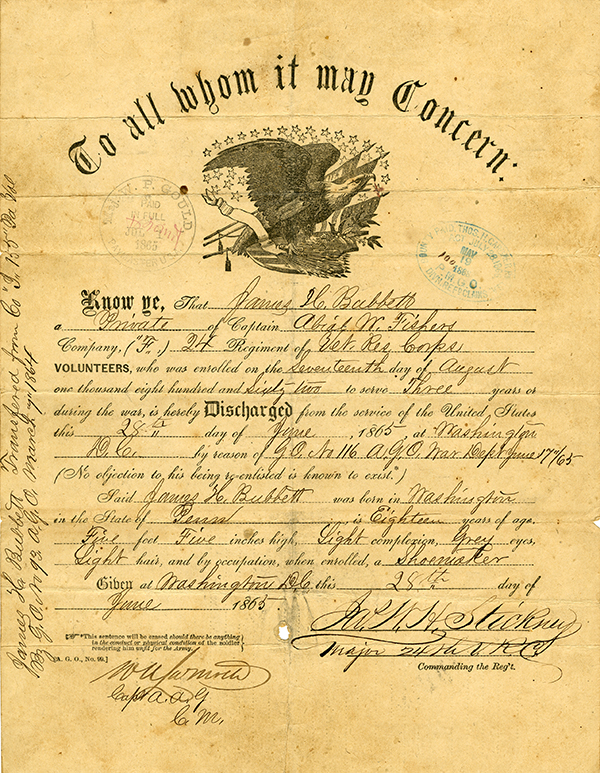 To all whom it may Concern:
F. GOULD
PAID
IN FULL
1865
MAY
Know ye, That James H. Bubbett
a Private of Captain Abial W. Fishers
Company, ("F.") 24 Regiment of Vet. Res. Corps
VOLUNTEERS, who was enrolled on the Seventeenth day of August
one thousand eight hundred and Sixty two to serve Three years or
during the war, is hereby Discharged from the service of the United States
this 28th day of June, 1865, at Washington
D.C. by reason of G.O. No 116 A.G.O. War Dept June 17th/65
(No objection to his being re-enlisted is known to exist.*)
Said James H. Bubbett was born in Washington
in the State of Penn, is Eighteen years of age,
Five feet Five inches high, Light complexion, Grey eyes,
Light hair, and by occupation, when enrolled, a Shoemaker
Given at Washington DC this 28th day of
June 1865.
W. H. Stickney
Major 24th V.R.C.
Commanding the Reg't.
*This sentence will be erased should there be anything
in the conduct or physical condition of the soldier
rendering him unfit for the Army.
[A. G. O., No. 99.]
Capt & A.A.G
C.M.
James H Bubbett Transferd from Co 155 Pa Vol
By G.O. No 93 A.G.O. March 7th 1864